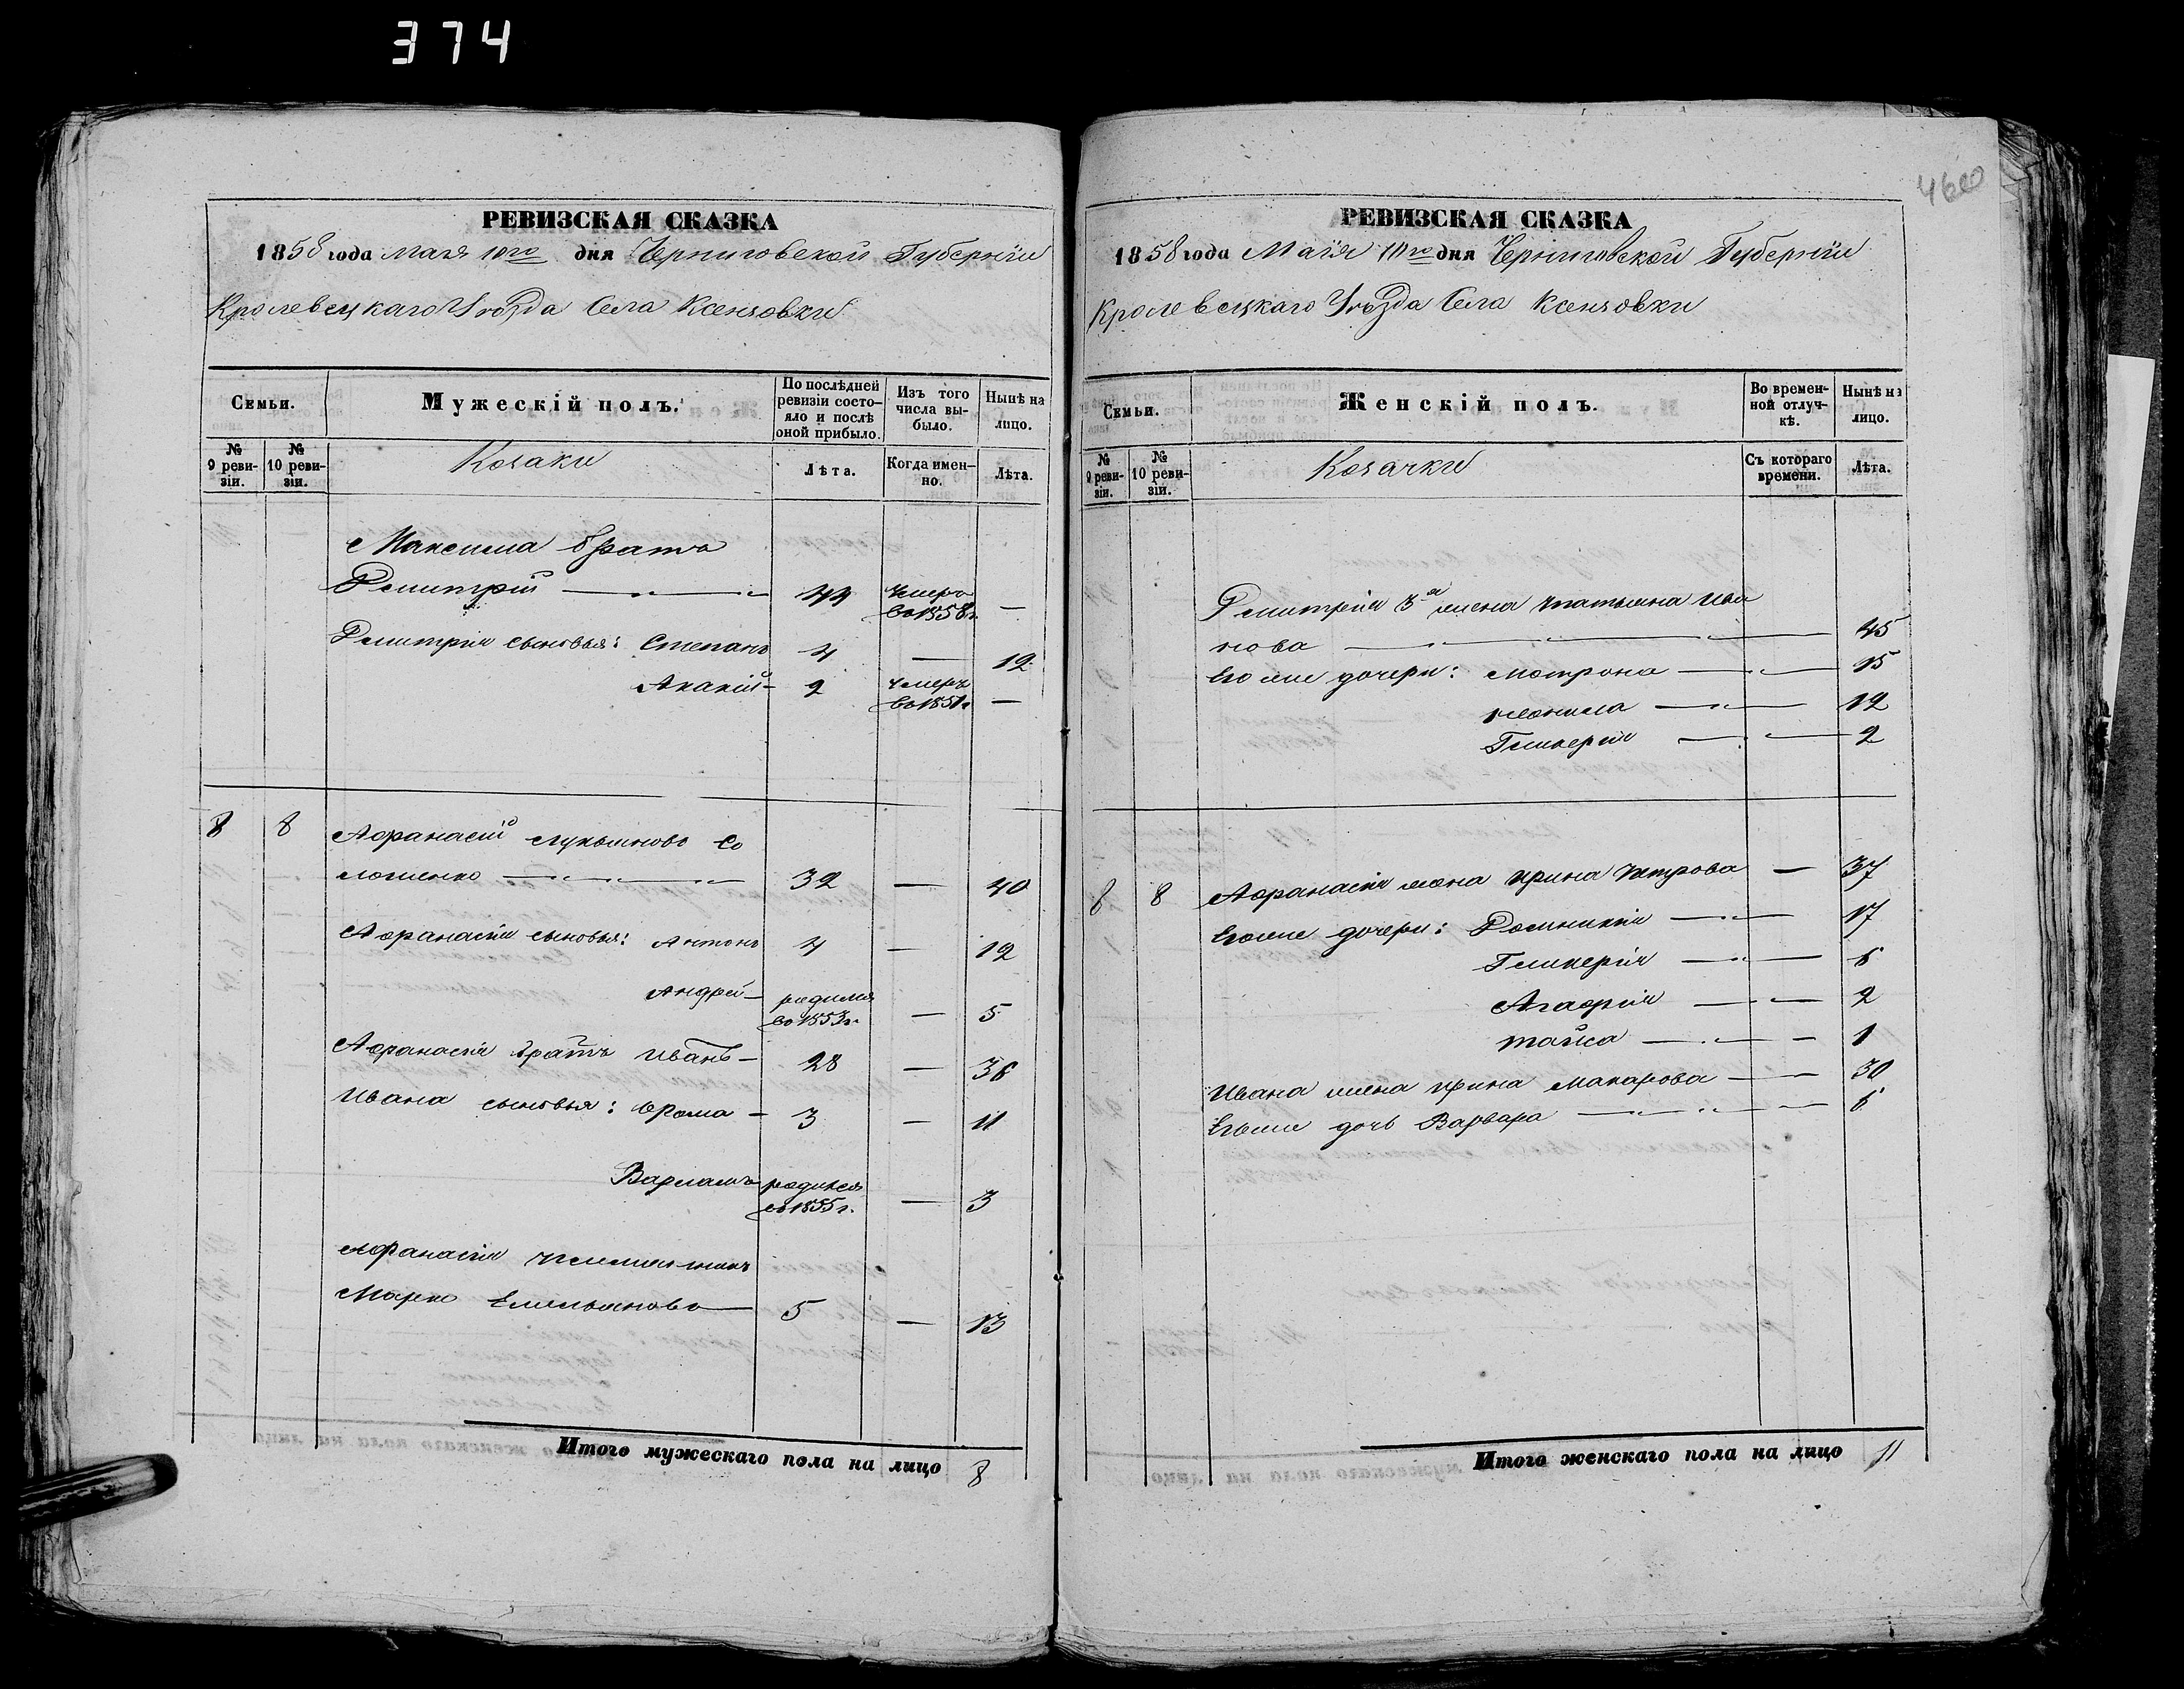 374
460
РЕВИЗСКАЯ СКАЗКА
1858 года мая 10го дня Черниговской Губерніи
Кролевецкаго Уѣзда Села Ксензовки
Семьи.
Мужескій полъ.
По послѣдней ревизіи состояло и послѣ оной прибыло.
Изъ того числа выбыло.
Нынѣ на лицо.
№ 9 ревизіи.
№ 10 ревизіи.
Козаки
Лѣта.
Когда именно.
Лѣта.
Максима братъ
Дмитрій 44 умеръ во 1858г. —
Дмитрія сыновья: Степанъ 4 — 12
Акакій 2 умеръ во 1851г —
8 8 Афанасій Лукьяновъ Со
32 — 40
Афанасія сыновья: Антонъ 4 — 12
Андрей родился во 1853г. — 5
Афанасія братъ Иванъ 28 — 36
Ивана сыновья: Ерема 3 — 11
Варламъ родился во 1855г. — 3
Афанасія племянникъ
Марко Емельяновъ 5 — 13
Итого мужескаго пола на лицо 8
РЕВИЗСКАЯ СКАЗКА
1858 года Маія 10го дня Черниговской Губерніи
Кролевецкаго Уѣзда Села Ксензовки
Семьи.
Женскій полъ.
Во временной отлучкѣ.
Нынѣ на лицо.
№ 9 ревизіи.
№ 10 ревизіи.
Козачки
Съ котораго времени.
Лѣта.
Дмитрія 3я жена Татьяна Ива
нова 45
Его же дочери: Мотрона 15
12
Гликерія 2
8 8 Афанасія жена Ирина Петрова — 37
Его же дочери: Домникія 17
Гликерія 6
Агафія 2
Таиса 1
Ивана жена Ирина Макарова 30
Его же дочь Варвара 6
Итого женскаго пола на лицо 11